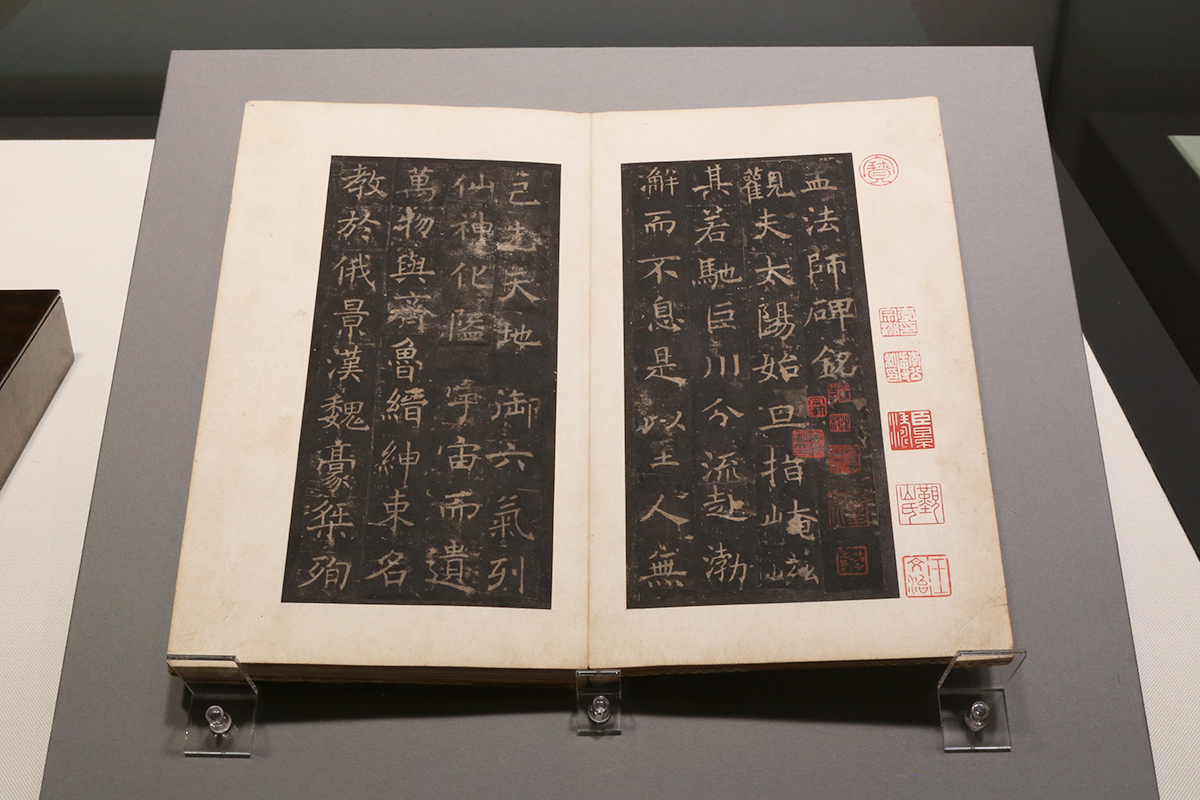 孟法師碑銘
觀夫太陽始旦指崦嵫
其若馳巨川分流赴渤
澥而不息是以至人無
己先天地御六氣列
仙神化隘宇宙而遺
萬物與齊魯縉紳東名
教於俄景漢魏豪桀殉
寶
臣景
汪文治